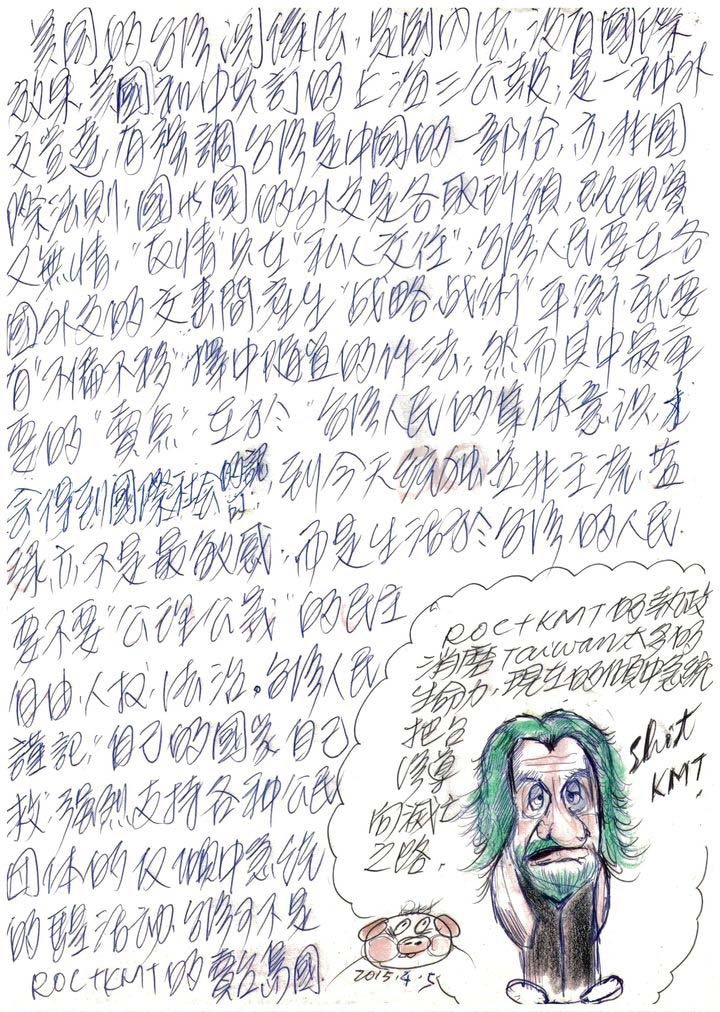 美國的台灣關係法,是國內法,沒有國際
效果,美國和中共訂的上海三公報,是一種外
交當達,有強調台灣是中國的一部份,亦非國
際法則,國此國的外交是各取所須,既現實
又無情,"友情"只在"私人交往",台灣人民要在各
國外交的交事間,產生"战略战術"平衡,就要
有"不偏不移"擇中隨道的作法,然而其中最主
要的"賣点",在於"台灣人民的具体意识,才
会得到國際社会的認訂,到今天統独並非主流,蓝
绿亦不是最敏感,而是生活於台灣的人民.
要不要"公理公義"的民主
自由,人权,法治。台灣人民
謹記,"自己的國家自己
救",强烈支持各种公民
团体的反傾中急統
的醒活动,台灣不是
ROC+KMT的賣台島國.
ROC+KMT的執政
消磨Taiwan太多的
生命力,現在的傾中急統
把台
灣導
向滅亡
之路.
shit
KMT!
2015.4.5